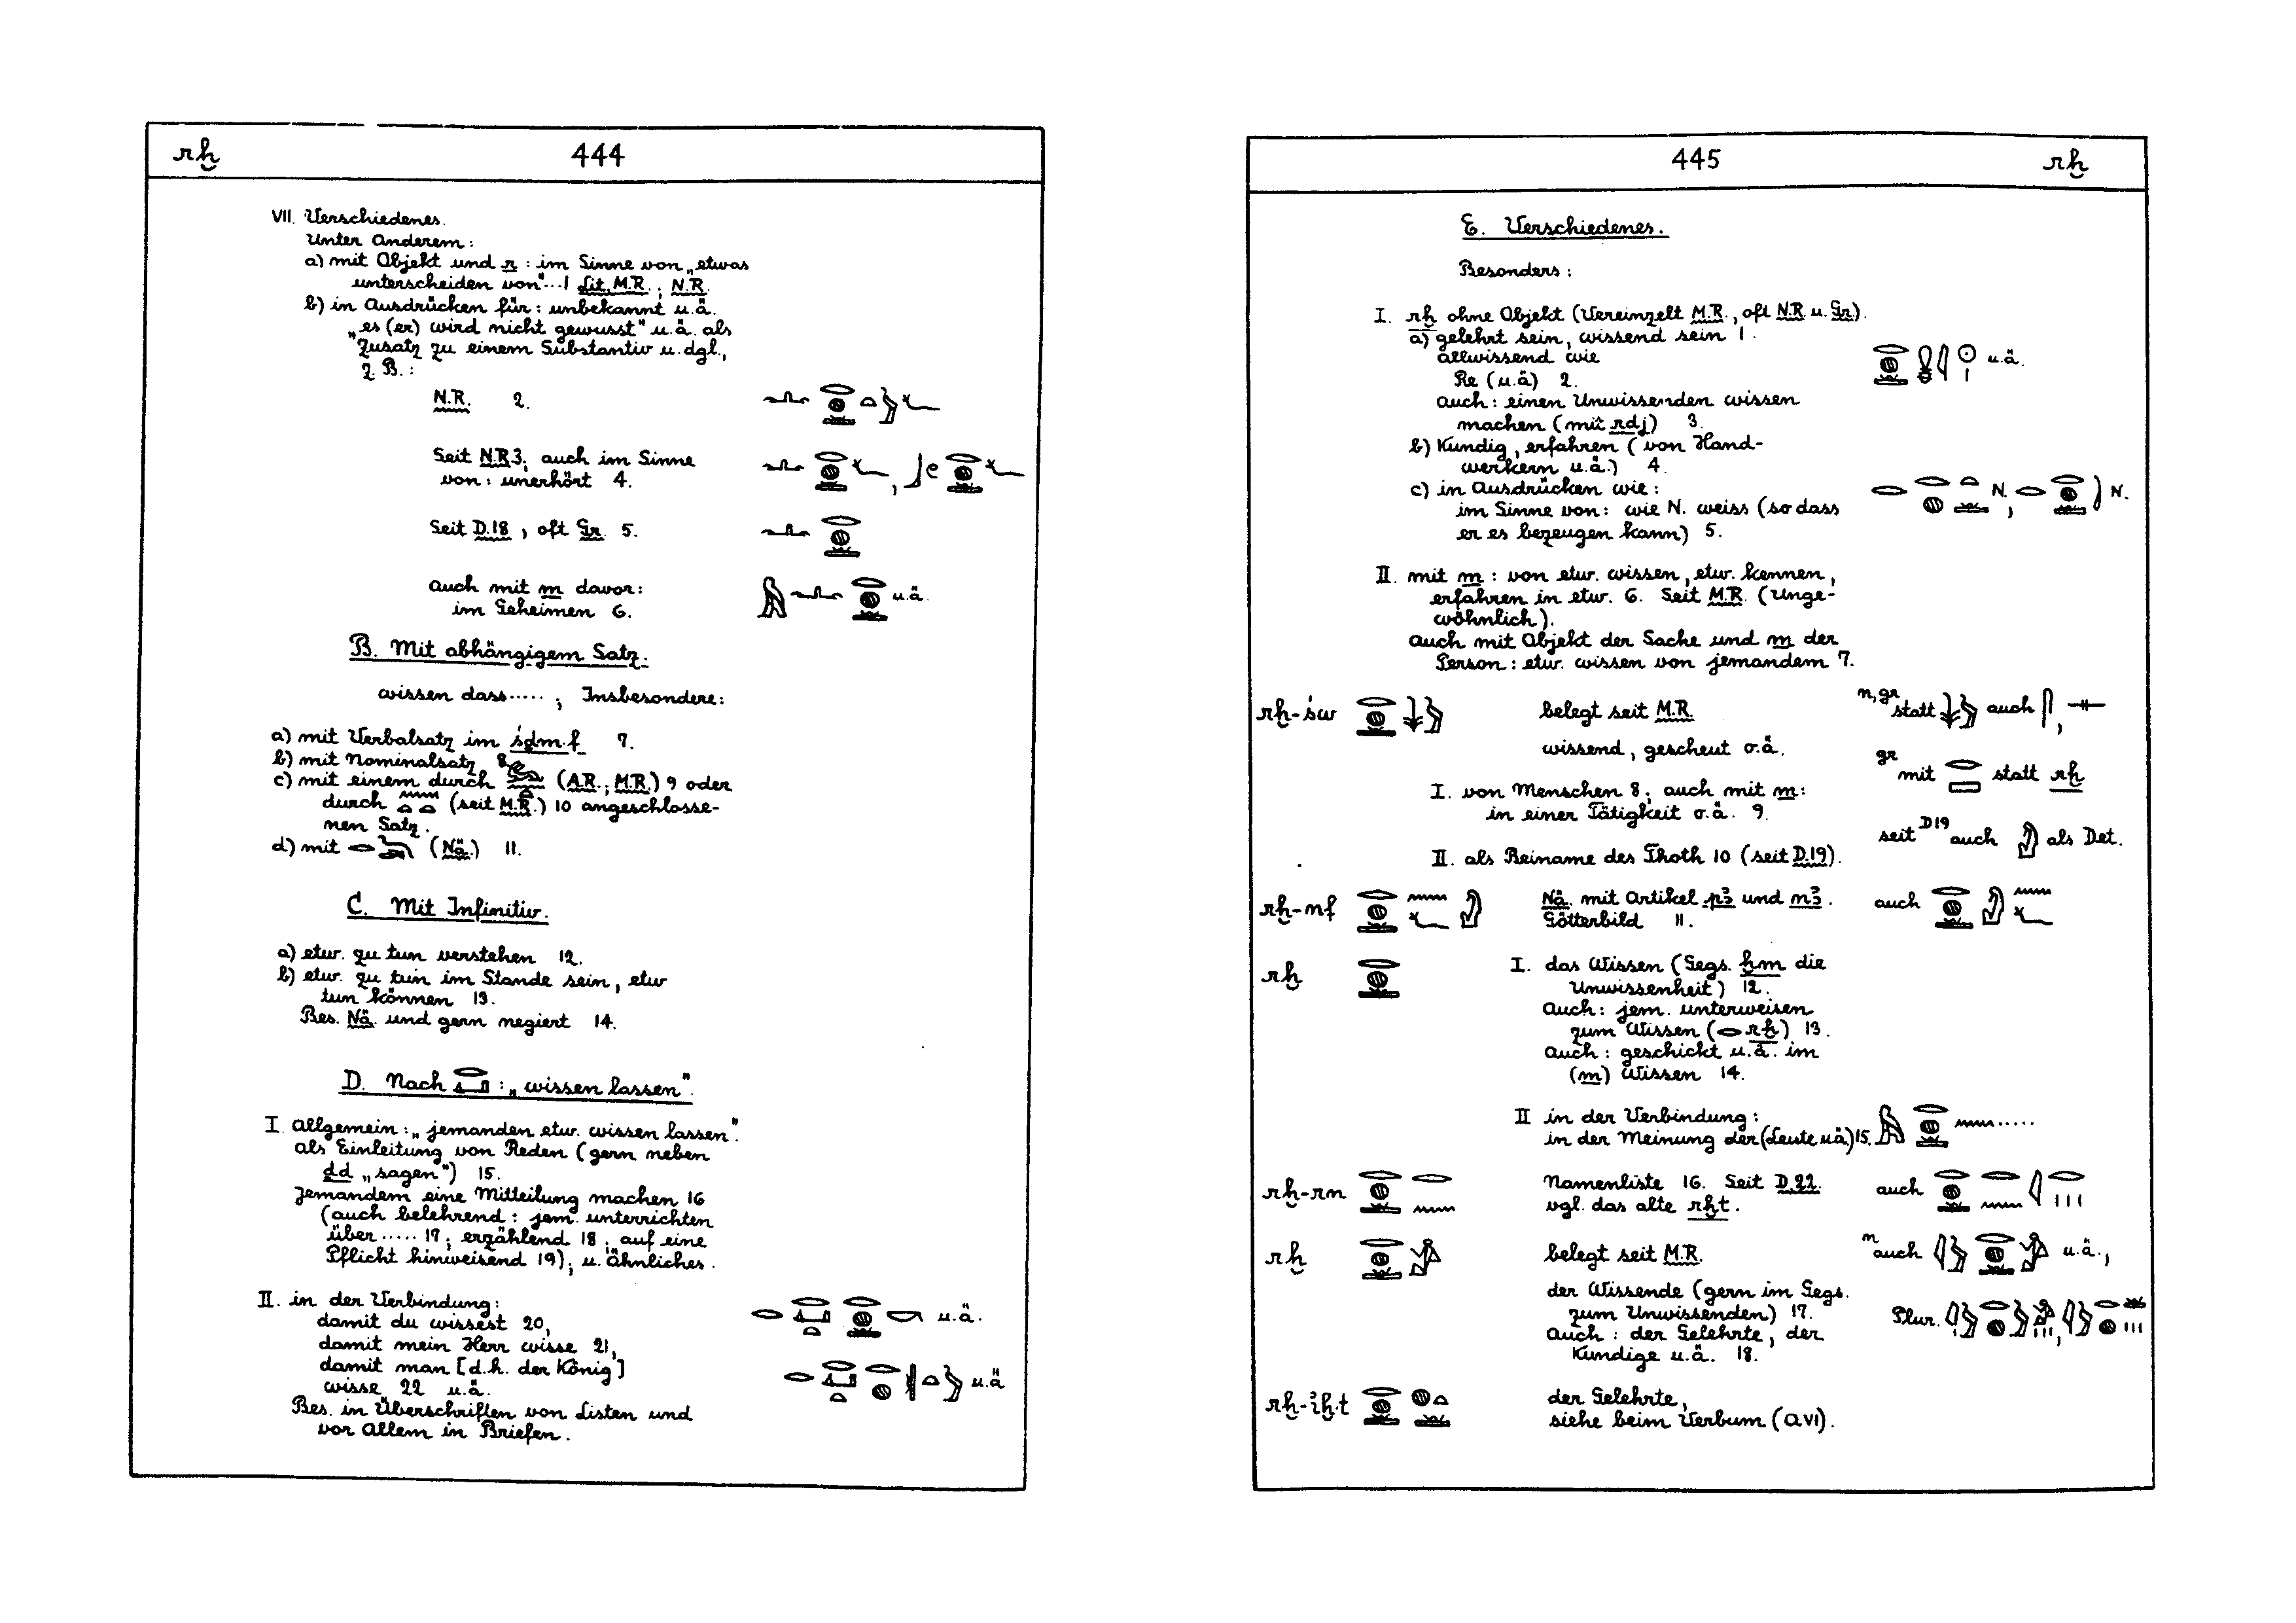 rḫ 444
VII. Verschiedenes.
Unter Anderem:
a) mit Objekt und r : im Sinne von „etwas
unterscheiden von"...1 Lit. M.R.; N.R.
b) in Ausdrücken für: unbekannt u.ä.
„es (er) wird nicht gewusst" u.ä. als
Zusatz zu einem Substantiv u. dgl.,
z. B.:
N.R. 2.
Seit N.R 3; auch im Sinne
von: unerhört 4.
Seit D.18, oft Gr. 5.
auch mit m davor: u.ä.
im Geheimen 6.
B. Mit abhängigem Satz.
wissen dass.....; Insbesondere:
a) mit Verbalsatz im śḏm.f 7.
b) mit Nominalsatz 8.
c) mit einem durch (A.R.; M.R.) 9 oder
durch (seit M.R.) 10 angeschlosse-
nen Satz.
d) mit (Nä.) 11.
C. Mit Infinitiv.
a) etw. zu tun verstehen 12.
b) etw. zu tun im Stande sein, etw
tun können 13.
Bes. Nä. und gern negiert 14.
D. Nach : „wissen lassen".
I. Allgemein: „jemanden etw. wissen lassen".
als Einleitung von Reden (gern neben
ḏd „sagen") 15.
Jemandem eine Mitteilung machen 16
(auch belehrend: jem. unterrichten
über ..... 17; erzählend 18; auf eine
Pflicht hinweisend 19); u. ähnliches.
II. in der Verbindung:
damit du wissest 20, u.ä.
damit mein Herr wisse 21,
damit man [d.h. der König]
wisse 22 u.ä. u.ä
Bes. in Überschriften von Listen und
vor Allem in Briefen.
445 rḫ
E. Verschiedenes.
Besonders:
I. rḫ ohne Objekt (Vereinzelt M.R., oft N.R u. Gr).
a) gelehrt sein, wissend sein 1.
allwissend wie u.ä.
Re (u.ä) 2.
auch: einen Unwissenden wissen
machen (mit rdj) 3.
b) Kundig, erfahren (von Hand-
werkern u.ä.) 4.
c) in Ausdrücken wie: N., N.
im Sinne von: wie N. weiss (so dass
er es bezeugen kann) 5.
II. mit m : von etw. wissen, etw. kennen,
erfahren in etw. 6. Seit M.R. (Unge-
wöhnlich).
auch mit Objekt der Sache und m der
Person: etw. wissen von jemandem 7.
rḫ-św belegt seit M.R. n, gr statt auch ,
wissend, gescheut o.ä.
gr mit statt rḫ
I. von Menschen 8; auch mit m:
in einer Tätigkeit o.ä. 9.
seit D19 auch als Det.
II. als Beiname des Thoth 10 (seit D.19).
rḫ-nf Nä. mit Artikel pꜣ und nꜣ. auch
Götterbild 11.
rḫ I. das Wissen (Gegs. ḫm die
Unwissenheit) 12.
Auch: jem. unterweisen
zum Wissen ( rḫ) 13.
Auch: geschickt u.ä. im
(m) Wissen 14.
II in der Verbindung:
in der Meinung der (Leute u.ä.) 15. .....
rḫ-rn Namenliste 16. Seit D.22. auch
vgl. das alte rḫt.
rḫ belegt seit M.R. n auch u.ä.,
der Wissende (gern im Gegs.
zum Unwissenden) 17. Plur. ,
Auch: der Gelehrte, der
Kundige u.ä. 18.
rḫ-iḫ.t der Gelehrte,
siehe beim Verbum (A VI).